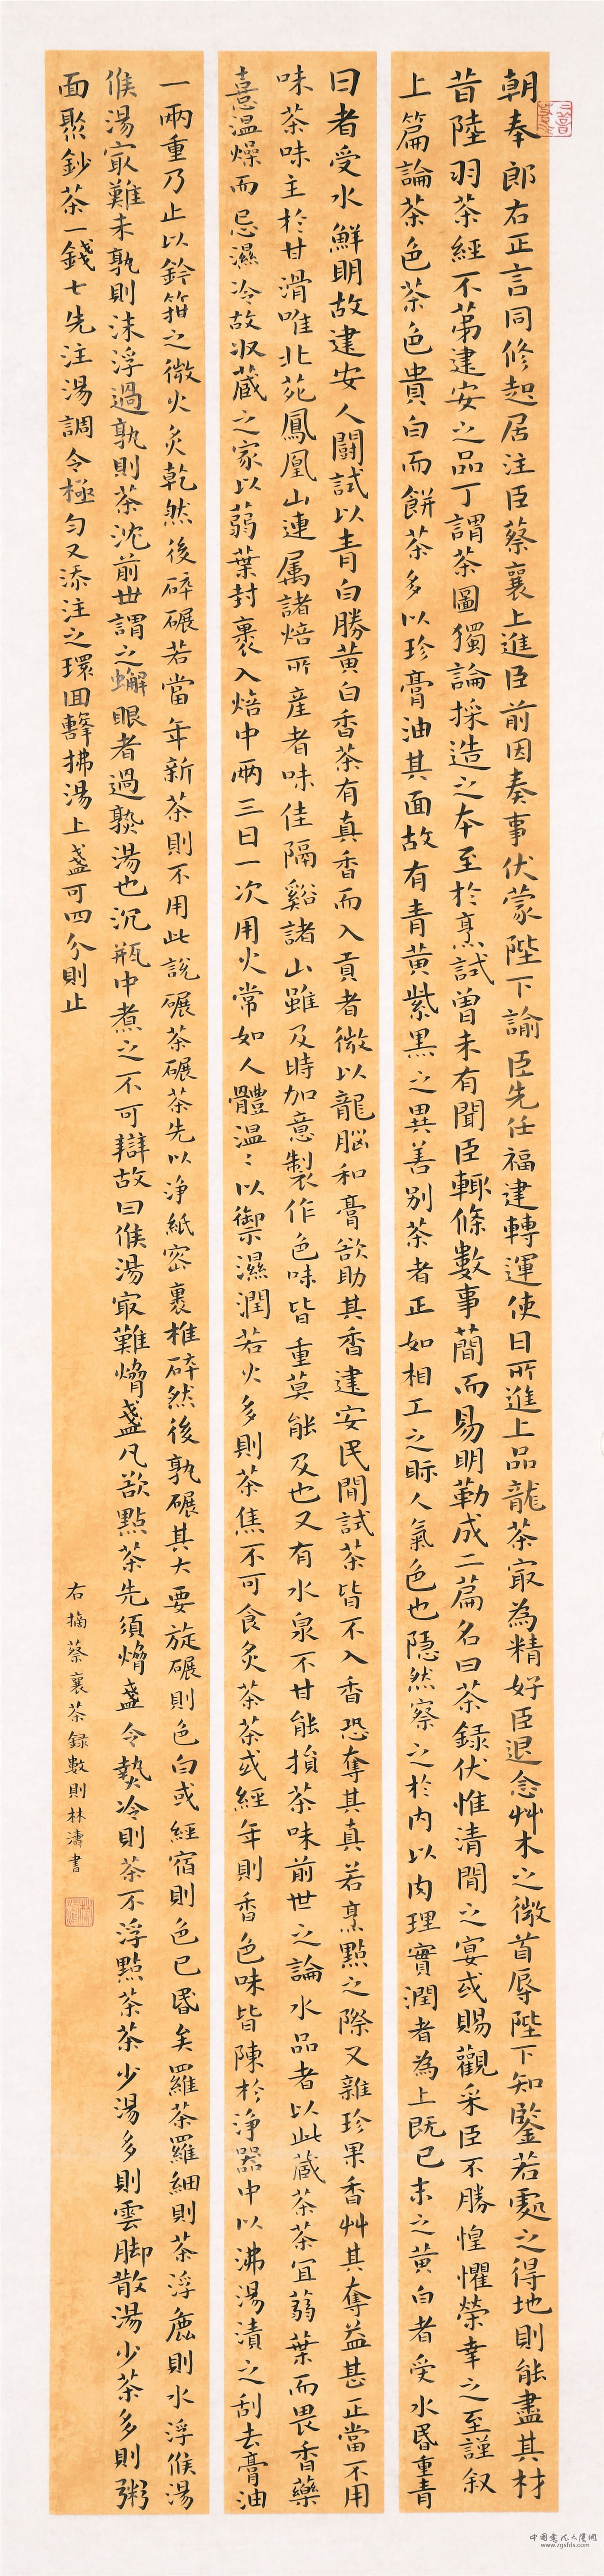 朝奉郎右正言同修起居注臣蔡襄上進臣前因奏事伏蒙陛下諭臣先任福建轉運使日所進上品龍茶寂為精好臣退念艸木之微首辱陛下知鑒若處之得地則能盡其材
昔陸羽茶經不苐建安之品丁謂茶圖獨論採造之本至於烹試曾未有聞臣輙條數事蕳而易明勒成二篇名曰茶録伏惟清閒之宴或賜觀采臣不勝惶懼榮幸之至謹叙
上篇論茶色茶色貴白而餅茶多以珍膏油其面故有青黄紫黒之異善別茶者正如相工之眎人氣色也隱然察之於内以肉理實潤者為上既已末之黄白者受水昬重青
曰者受水鮮明故建安人闘試以青白勝黄白香茶有真香而入貢者微以龍腦和膏欲助其香建安民間試茶皆不入香恐奪其真若烹點之際又雜珍果香艸其奪益甚正當不用
味茶味主於甘滑唯北苑鳳凰山連属諸焙所産者味佳隔谿諸山雖及時加意製作色味皆重莫能及也又有水泉不甘能損茶味前世之論水品者以此藏茶茶宜蒻葉而畏香藥
憙温燥而忌濕冷故收蔵之家以蒻葉封裹入焙中兩三日一次用火常如人體温〻以禦濕潤若火多則茶焦不可食炙茶茶或經年則香色味皆陳於浄器中以沸湯漬之刮去膏油
一兩重乃止以鈐箝之微火炙乾然後碎碾若當年新茶則不用此説碾茶碾茶先以浄紙密裹椎碎然後孰碾其大要旋碾則色白或經宿則色已昬矣羅茶羅細則茶浮麁則水浮候湯
候湯寂難未孰則沫浮過孰則茶沈前世謂之蠏眼者過熟湯也沉瓶中煮之不可辯故曰候湯寂難熁盞凡欲點茶先須熁盞令熱冷則茶不浮點茶茶少湯多則雲脚散湯少茶多則粥
面聚鈔茶一錢七先注湯調令極匀又添注之環回擊拂湯上盞可四分則止
右摘蔡襄茶録數則林濤書
中国书法大厦网
www.zgsfds.com